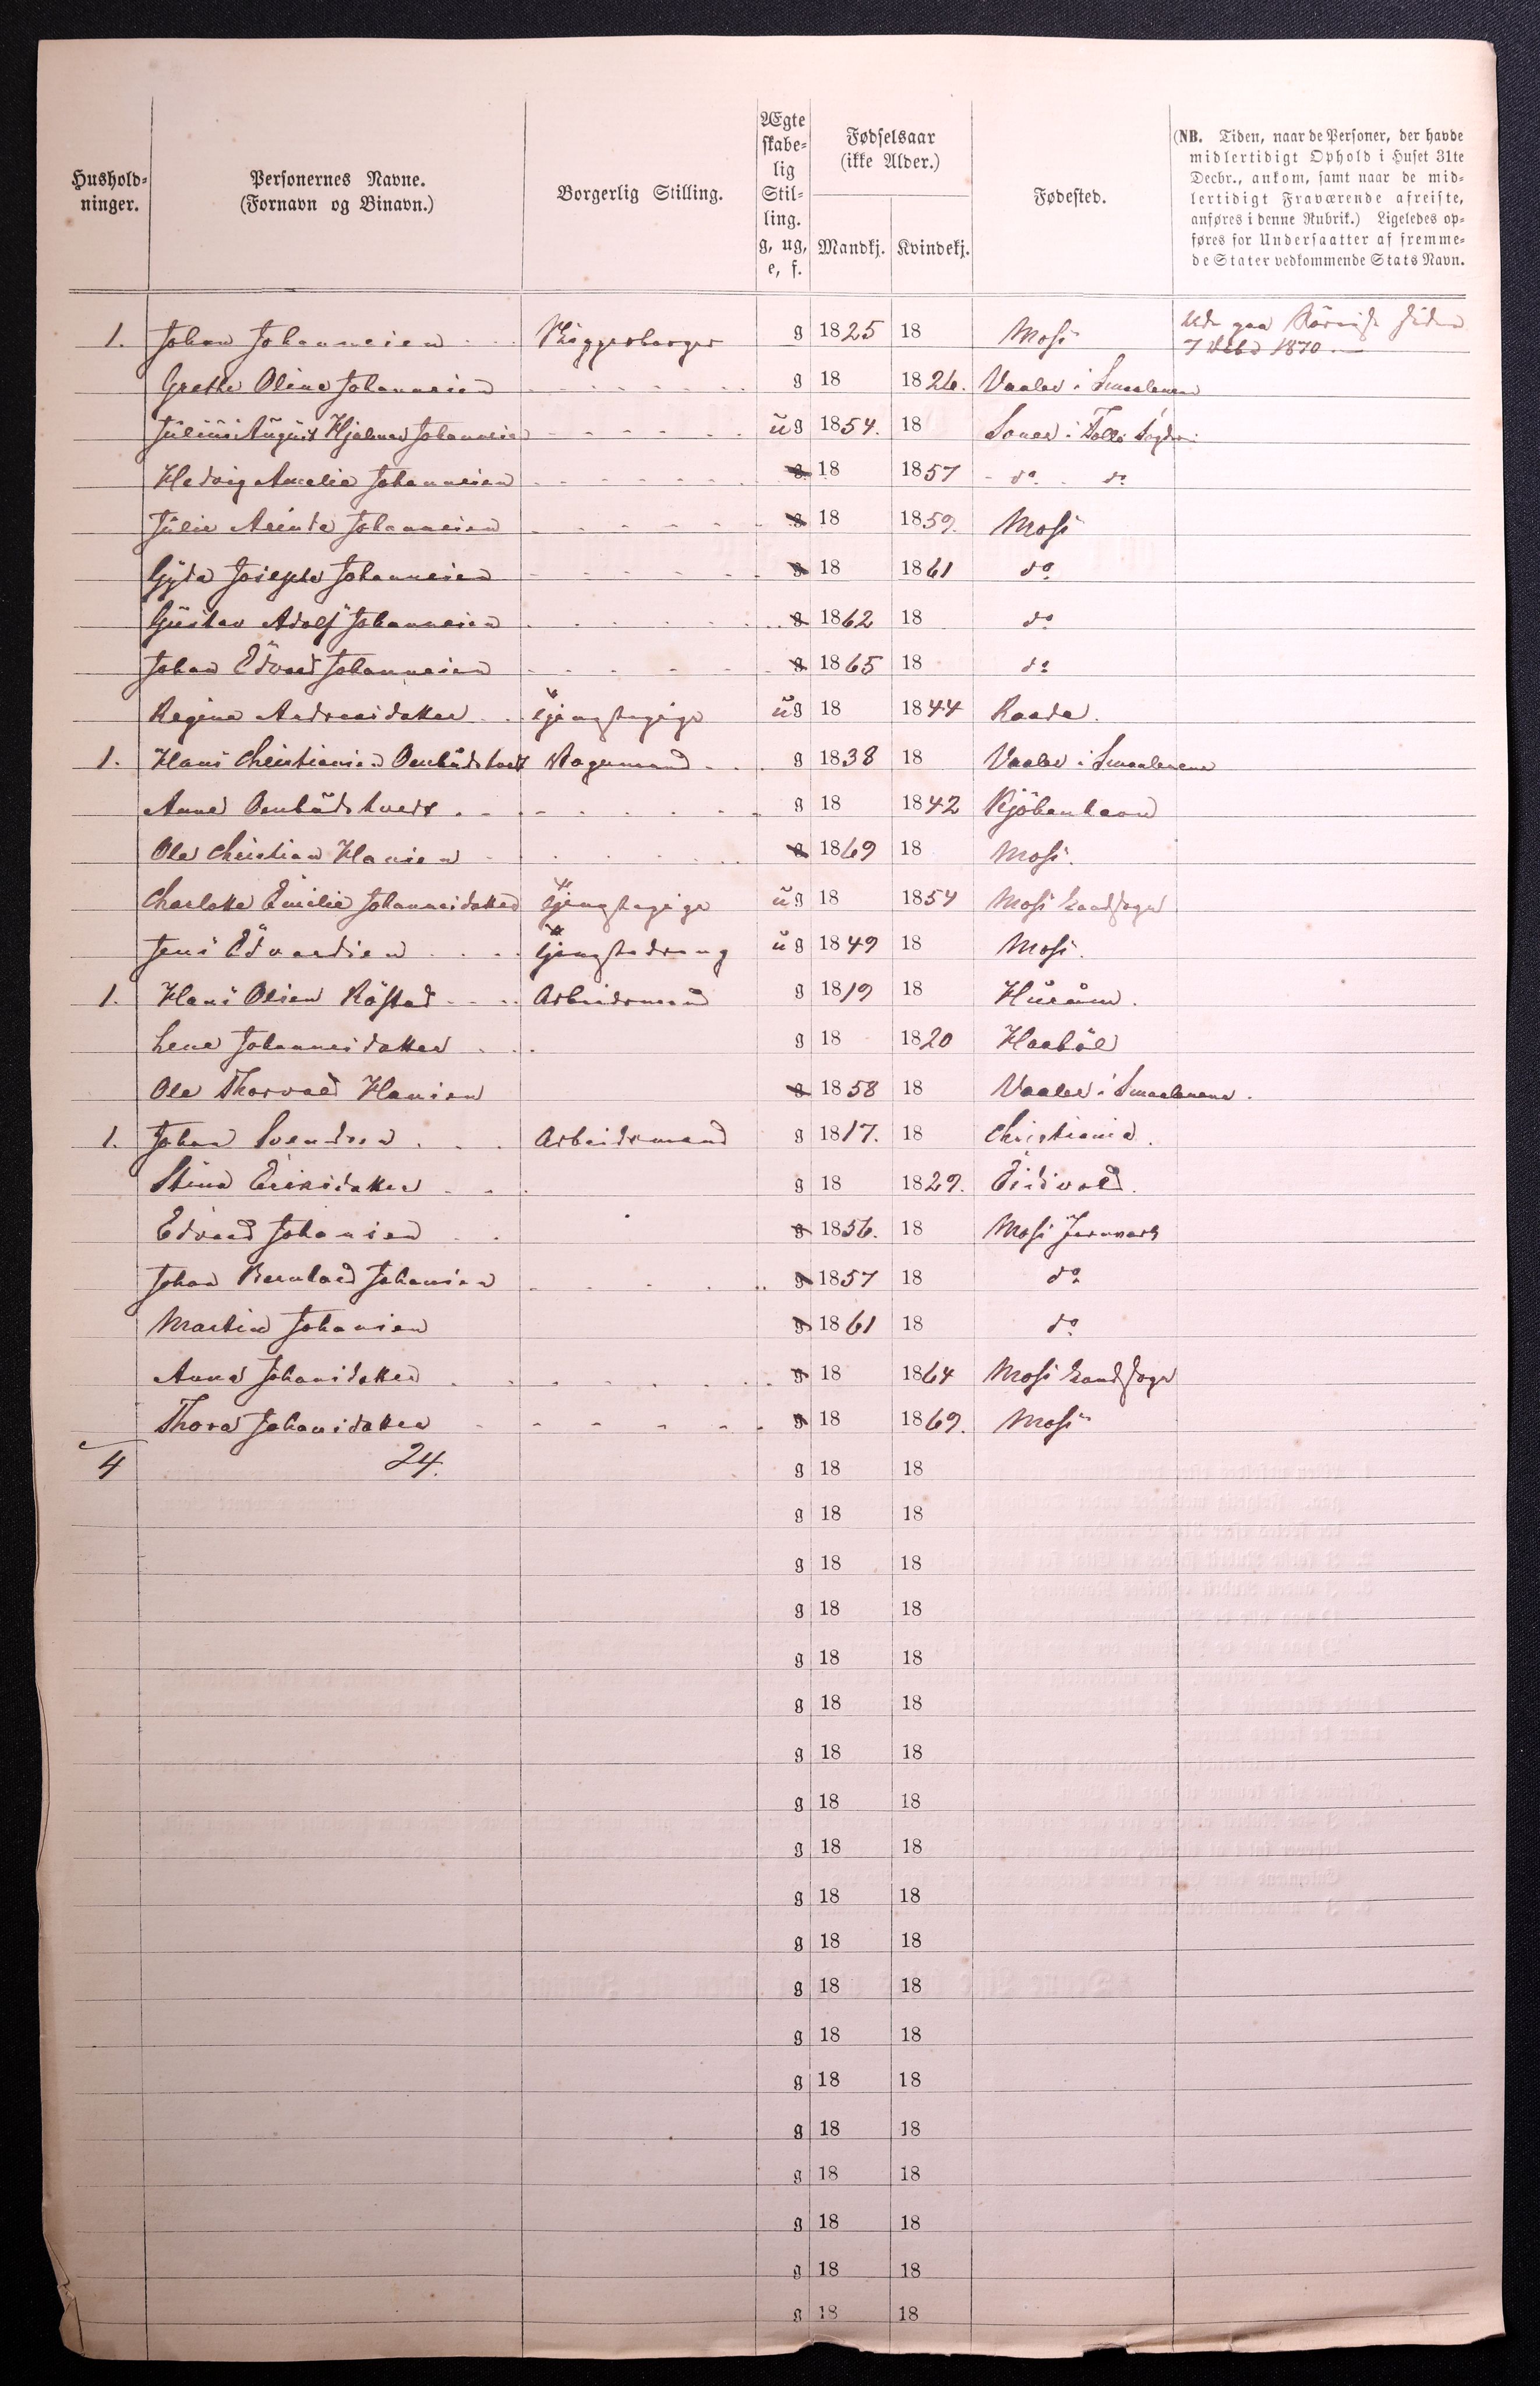 Hushold-
ninger.
Personernes Navne.
(Fornavn og Binavn.)
Borgerlig Stilling.
Ægte
skabe-
lig
Stil-
ling.
g, ug,
e, f.
Fødselsaar
(ikke Alder.)
Mandkj. Kvindekj.
Fødested.
(NB. Tiden, naar de Personer, der havde
midlertidigt Ophold i Huset 31te
Decbr., ankom, samt naar de mid-
lertidigt Fraværende afreiste,
anføres i denne Rubrik.) Ligeledes op-
føres for Undersaatter af fremme-
de Stater vedkommende Stats Navn.
1. Johan Johannesen Skippersborger g 1825 18 Moss Ude paa Reise siden
7 1870
Grethe Oline Johannesen g 18 1826. Vaaler i Smaalenene
Julius August Hjalmar Johannesen ug 1854. 18 Soner i Follo
Hedvig Amalie Johannesen g 18 1857 do. do
Julie Johannesen g 18 1859. Moss
Gyda Josepha Johannesen g 18 1861 do
Gustav Adolf Johannesen g 1862 18 do
Johan Edvard Johannesen g 1865 18 do
Regine Andreasdatter Tjenestepige ug 18 1844 Raade.
1. Hans Christiansen Ombudstvedt Vognmand g 1838 18 Vaaler i Smaalenene
Anne Ombudstvedt g 18 1842 Kjöbenhavn
Ole Christian Hansen g 1869 18 Moss.
Charlotte Emilie Johannesdatter Tjenestepige ug 18 1854 Moss Landsogn
Jens Edvardsen Tjenestedreng ug 1849 18 Moss.
1. Hans Olsen Röstad Arbeidsmand g 1819 18 Hurum.
Lene Johannesdatter g 18 1820 Haaböl
Ole Thorvald Hansen g 1858 18 Vaaler i Smaalenene.
1. Johan Svendsen Arbeidsmand g 1817. 18 Christiania.
Stina Eriksdatter g 18 1829. Eidsvold.
Edvard Johansen g 1856. 18 Moss Jernverk
Johan Bernhard Johansen g 1857 18 do
Martin Johansen g 1861 18 do
Anna Johansdatter g 18 1864 Moss Landsogn
Thora Johansdatter g 18 1869. Moss
4 24. g 18 18
g 18 18
g 18 18
g 18 18
g 18 18
g 18 18
g 18 18
g 18 18
g 18 18
g 18 18
g 18 18
g 18 18
g 18 18
g 18 18
g 18 18
g 18 18
g 18 18
g 18 18
g 18 18